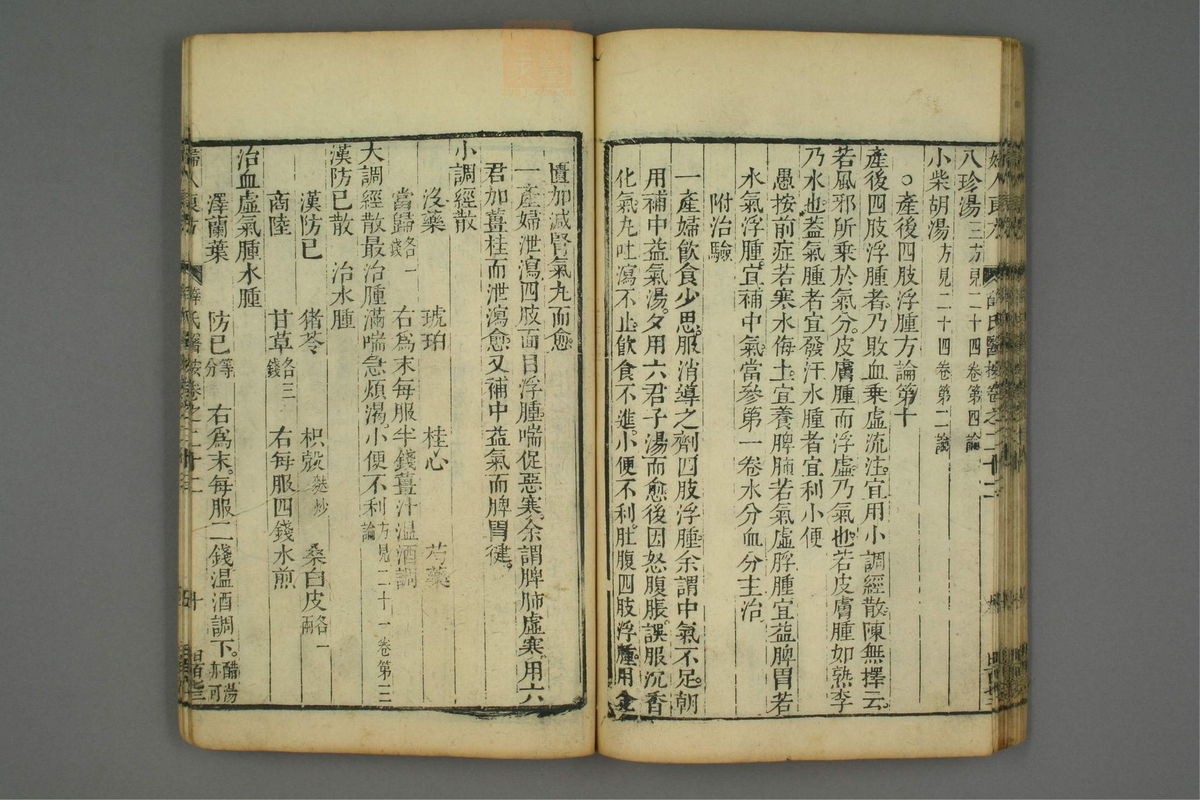 八珍湯三方見二十四卷第四論
小柴胡湯方見二十四卷第二論
○產後四肢浮腫方論第十
產後四肢浮腫者乃敗血乗虛流注宜用小調經散陳無擇云
若風邪所乘於氣分皮膚腫而浮虛乃氣也若皮膚腫如熟李
乃水也蓋氣腫者宜發汗水腫者宜利小便
愚按前症若寒水侮土宜養脾肺若氣虛脬腫宜益脾胃若
水氣浮腫宜補中氣當參第一卷水分血分主治
附治驗
一產婦飲食少思服消導之劑四肢浮腫余謂中氣不足朝
用補中益氣湯夕用六君子湯而愈後因怒腹脹誤服沉香
化氣丸吐瀉不止飲食不進小便不利肚腹四肢浮腫用金
匱加减腎氣丸而愈
一產婦泄瀉四肢面目浮腫喘促惡寒余謂脾肺虛寒用六
君加薑桂而泄瀉愈又補中益氣而脾胃徤
小調經散
沒藥 琥珀 桂心 芍藥
當歸各一錢 右爲末每服半錢薑汁温酒調
大調經散最治腫滿喘急煩渴小便不利方見二十一卷第三論
漢防巳散 治水腫
漢防巳 猪苓 枳殼麩炒 桑白皮各一兩
商陸 甘草各三錢 右每服四錢水煎
治血虛氣腫水腫
澤蘭葉 防巳等分 右爲末每服二錢温酒調下醋湯亦可